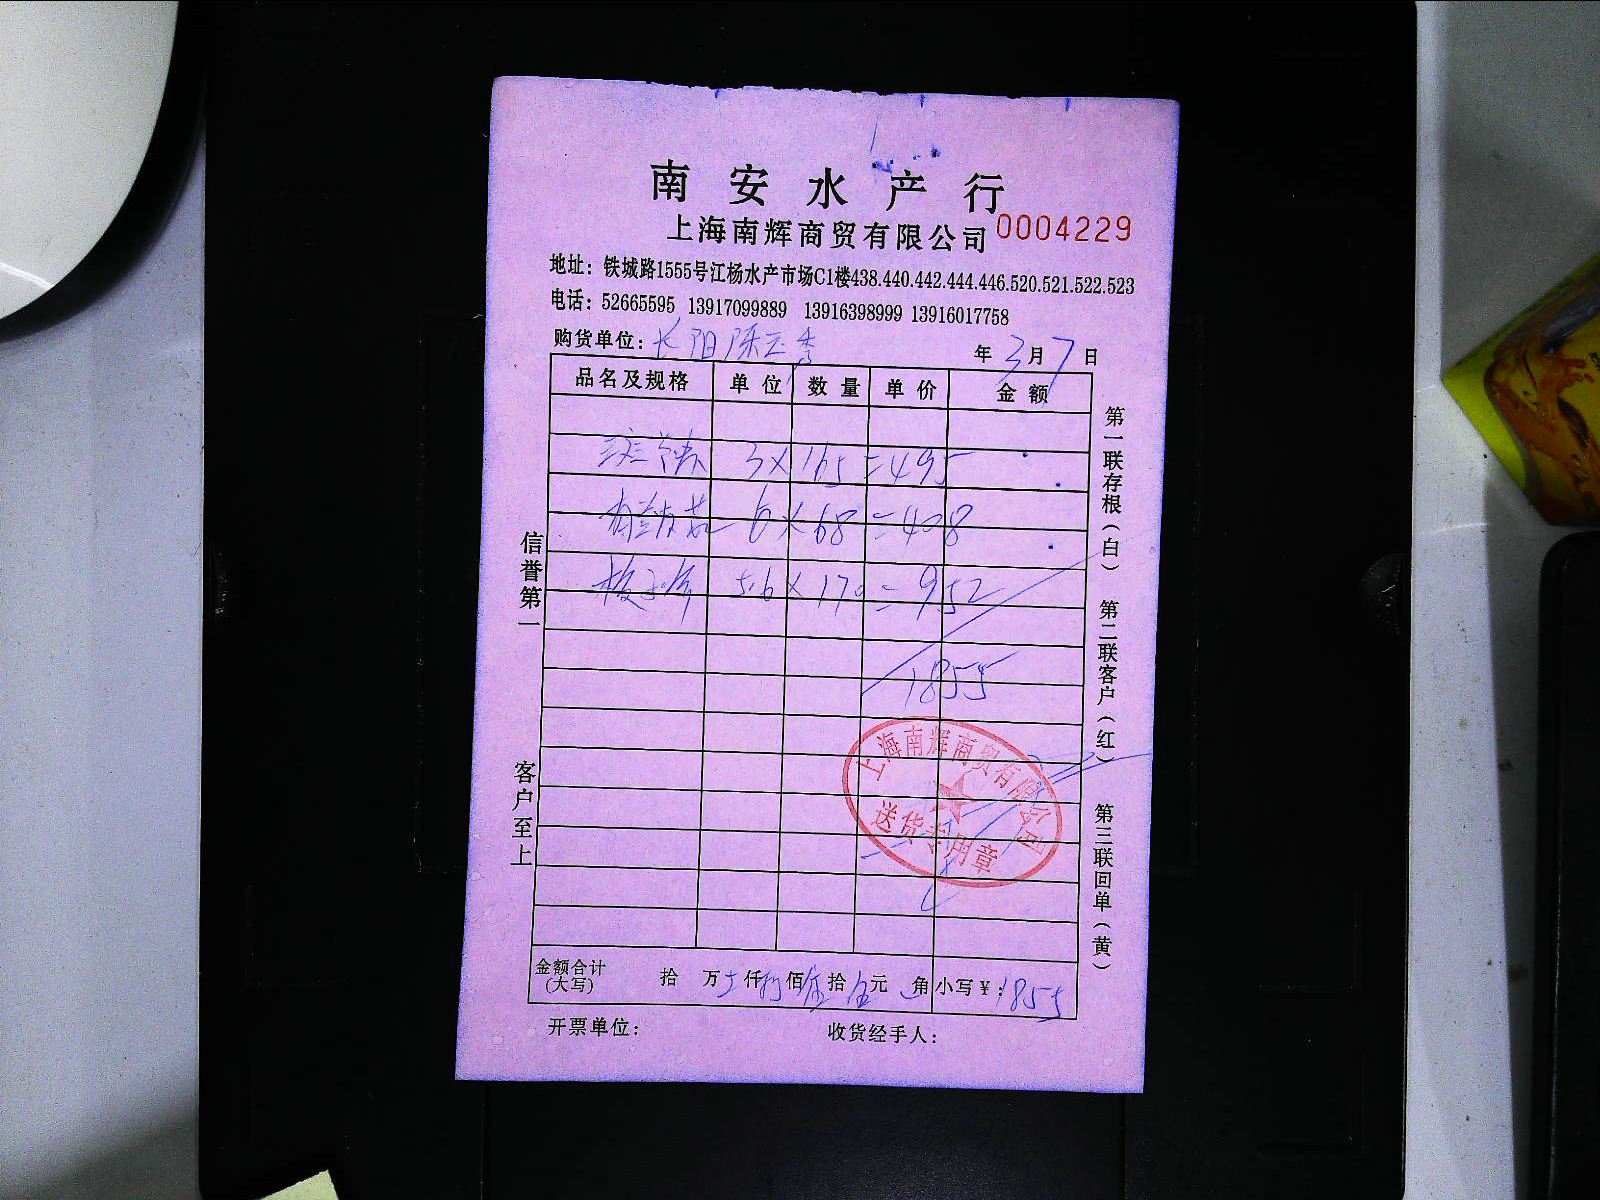 南安水产行
上海南辉商贸有限公司 0004229
地址：铁城路1555号江杨水产市场C1楼438.440.442.444.446.520.521.522.523
电话：52665595 13917099889 13916398999 13916017758
购货单位：长阳陈 年3月7日
品名及规格 单位 数量 单价 金额
3×165=495
6×68=408
5.6×170=952
1855
上海南辉商贸有限公司
送货专用章
金额合计(大写) 拾 万 仟 佰 拾 伍元 角 小写￥：1855
开票单位： 收货经手人：
信誉第一
客户至上
第一联存根(白)
第二联客户(红)
第三联回单(黄)